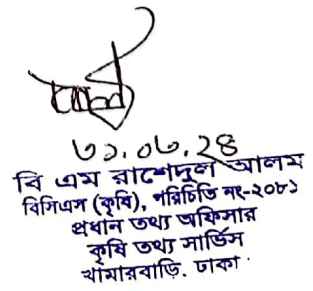 ৩১.০৮.২৪
বি এম রাশেদুল আলম
বিসিএস (কৃষি), পরিচিতি নং-২০৮১
প্রধান তথ্য অফিসার
কৃষি তথ্য সার্ভিস
খামারবাড়ি. ঢাকা